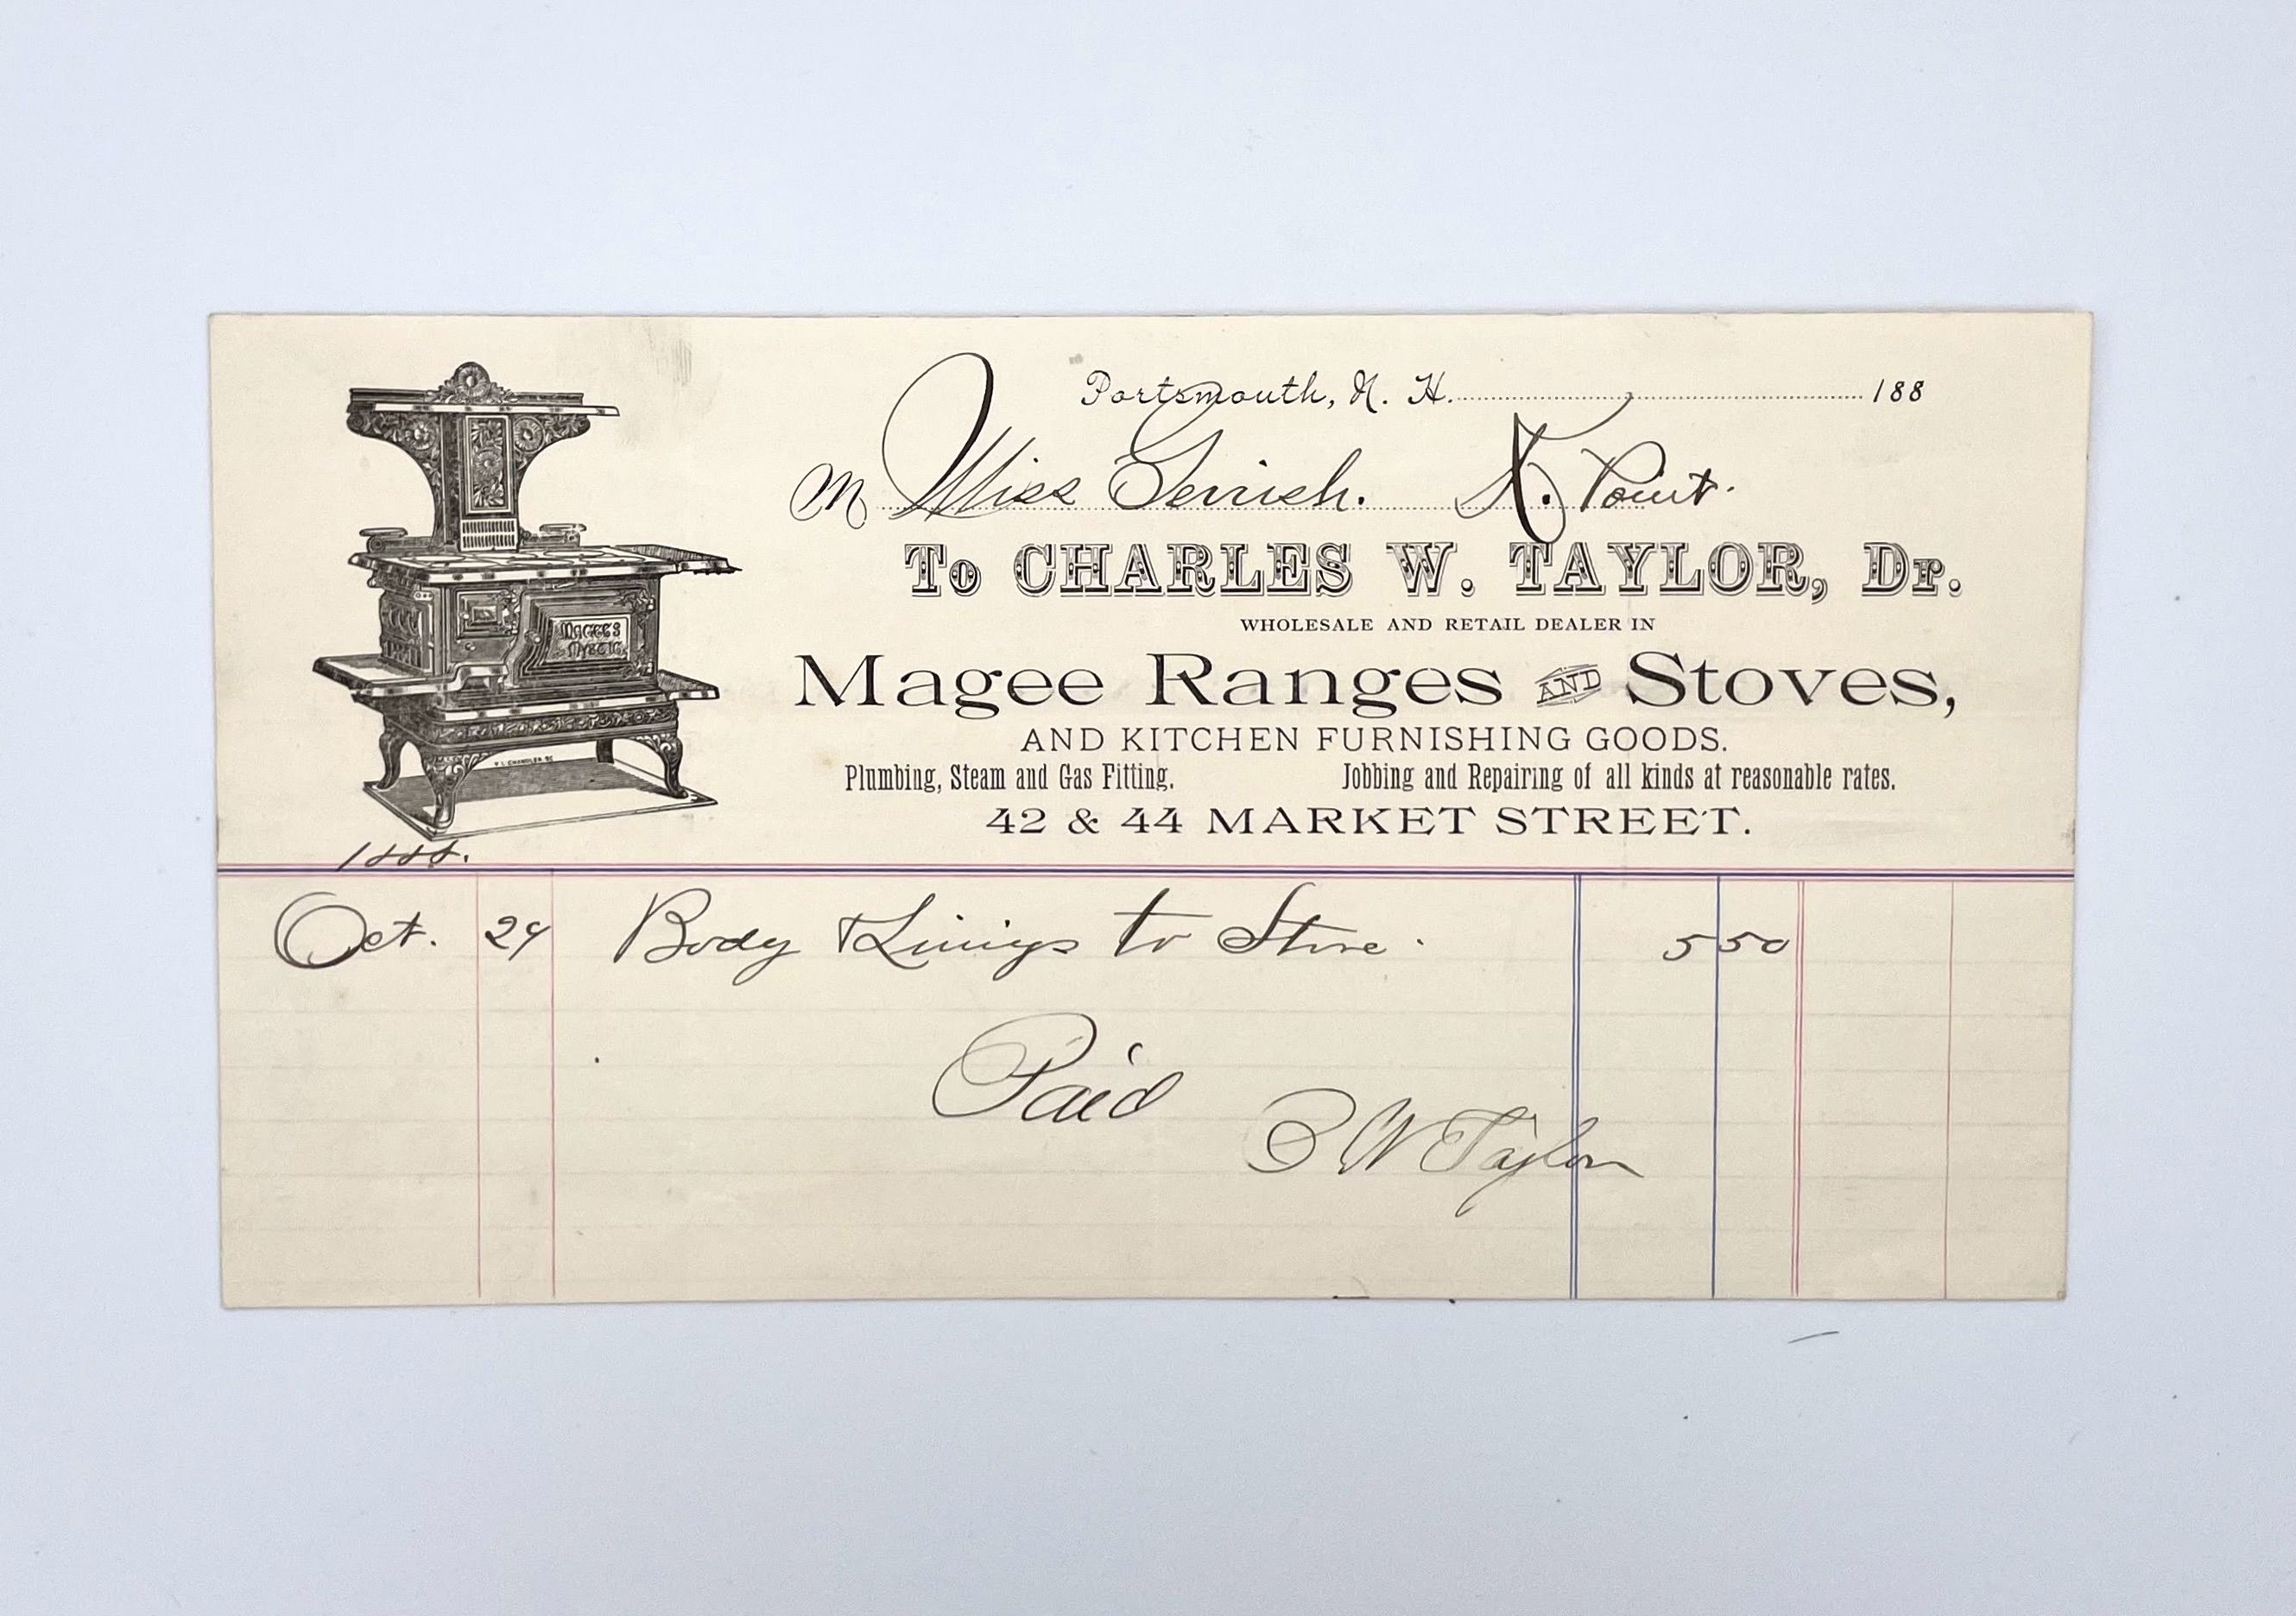 Portsmouth, N. H. 188
M Miss Gerrish. K. Point.
To CHARLES W. TAYLOR, Dr.
WHOLESALE AND RETAIL DEALER IN
Magee Ranges AND Stoves,
AND KITCHEN FURNISHING GOODS.
Plumbing, Steam and Gas Fitting. Jobbing and Repairing of all kinds at reasonable rates.
42 & 44 MARKET STREET.
MAGEES
MYSTIC
1888.
Oct. 29 Body & Linings to Stove. 5 50
Paid
C W Taylor